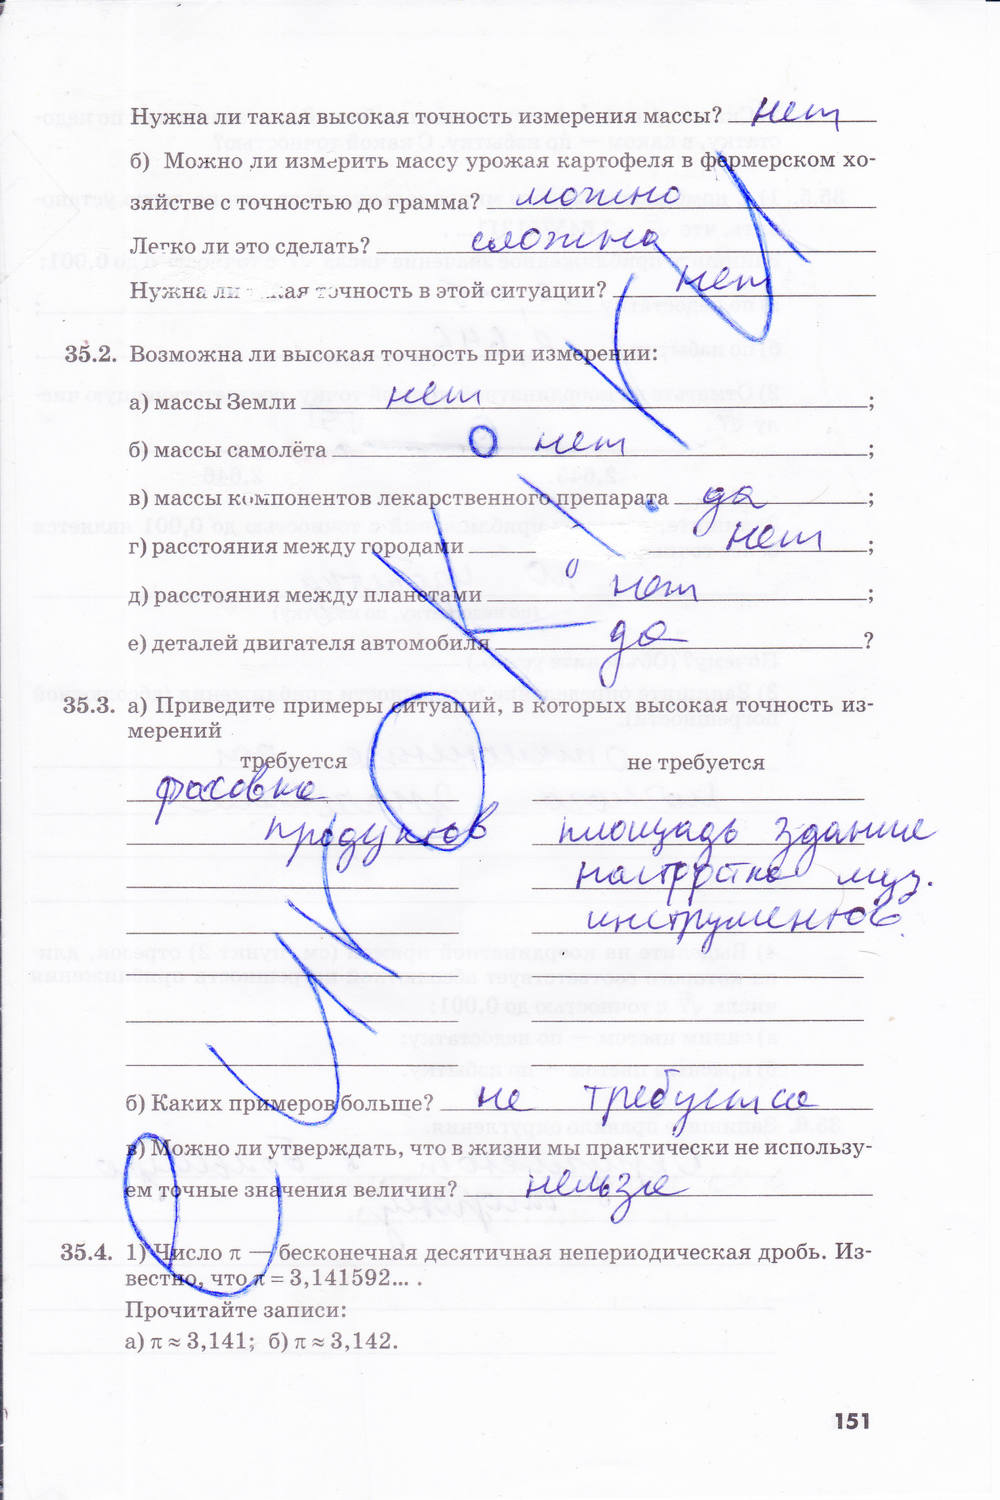 Нужна ли такая высокая точность измерения массы? нет
б) Можно ли измерить массу урожая картофеля в фермерском хо-
зяйстве с точностью до грамма? можно
Легко ли это сделать? сложно
Нужна ли такая точность в этой ситуации? нет
35.2. Возможна ли высокая точность при измерении:
а) массы Земли нет ;
б) массы самолёта нет ;
в) массы компонентов лекарственного препарата да ;
г) расстояния между городами нет ;
д) расстояния между планетами нет ;
е) деталей двигателя автомобиля да ?
35.3. а) Приведите примеры ситуаций, в которых высокая точность из-
мерений
требуется не требуется
фасовка
продуктов площадь здание
настройка муз.
инструментов.
б) Каких примеров больше? не требуется
в) Можно ли утверждать, что в жизни мы практически не использу-
ем точные значения величин? нельзя
35.4. 1) Число π — бесконечная десятичная непериодическая дробь. Из-
вестно, что π = 3,141592... .
Прочитайте записи:
а) π ≈ 3,141; б) π ≈ 3,142.
151